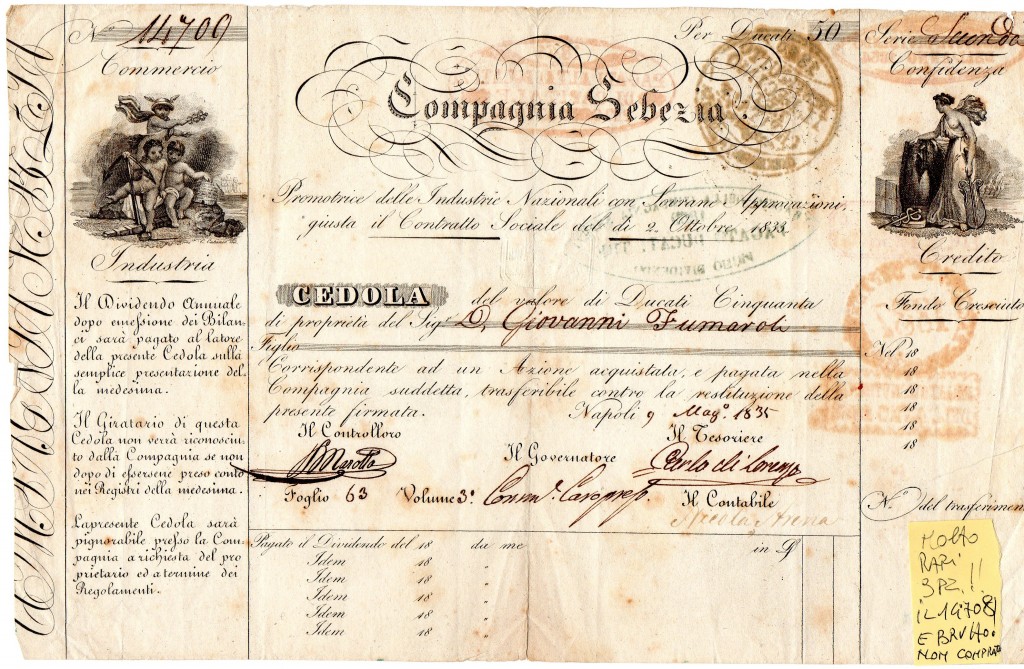 N.º 14709
Commercio
Industria
Il Dividendo Annuale
dopo emessione dei Bilan-
ci sarà pagato al latore
della presente Cedola sulla
semplice presentazione del-
la medesima.
Il Giratario di questa
Cedola non verrà riconosciu-
to dalla Compagnia se non
dopo di essersene preso conto
nei Registri della medesima.
La presente Cedola sarà
pignorabile presso la Com-
pagnia a richiesta del pro-
prietario ed a termine dei
Regolamenti.
Per Ducati 50
Compagnia Sebezia
Promotrice delle Industrie Nazionali con Sovrane Approvazioni,
giusta il Contratto Sociale del dì 2. Ottobre 1833.
CEDOLA del valore di Ducati Cinquanta
di proprietà del Sig.r D. Giovanni Fumaroli
Figlio
Corrispondente ad un Azione acquistata, e pagata nella
Compagnia suddetta, trasferibile contro la restituzione della
presente firmata. Napoli 9 Mag.º 1835
Il Controlloro Il Tesoriere
Il Governatore Carlo di Lorenzo
Foglio 63 Volume 3º Il Contabile
Pagato il Dividendo del 18 da me in D
Idem 18 "
Idem 18 "
Idem 18 "
Idem 18 "
Idem 18 "
Serie Seconda
Confidenza
Credito
Fondo Cresciuto
Nel 18
18
18
18
18
18
N.º del trasferimen
MOLTO
RARI
3 PZ.!!
IL 14708
E BRUTTO.
NON COMPRATO